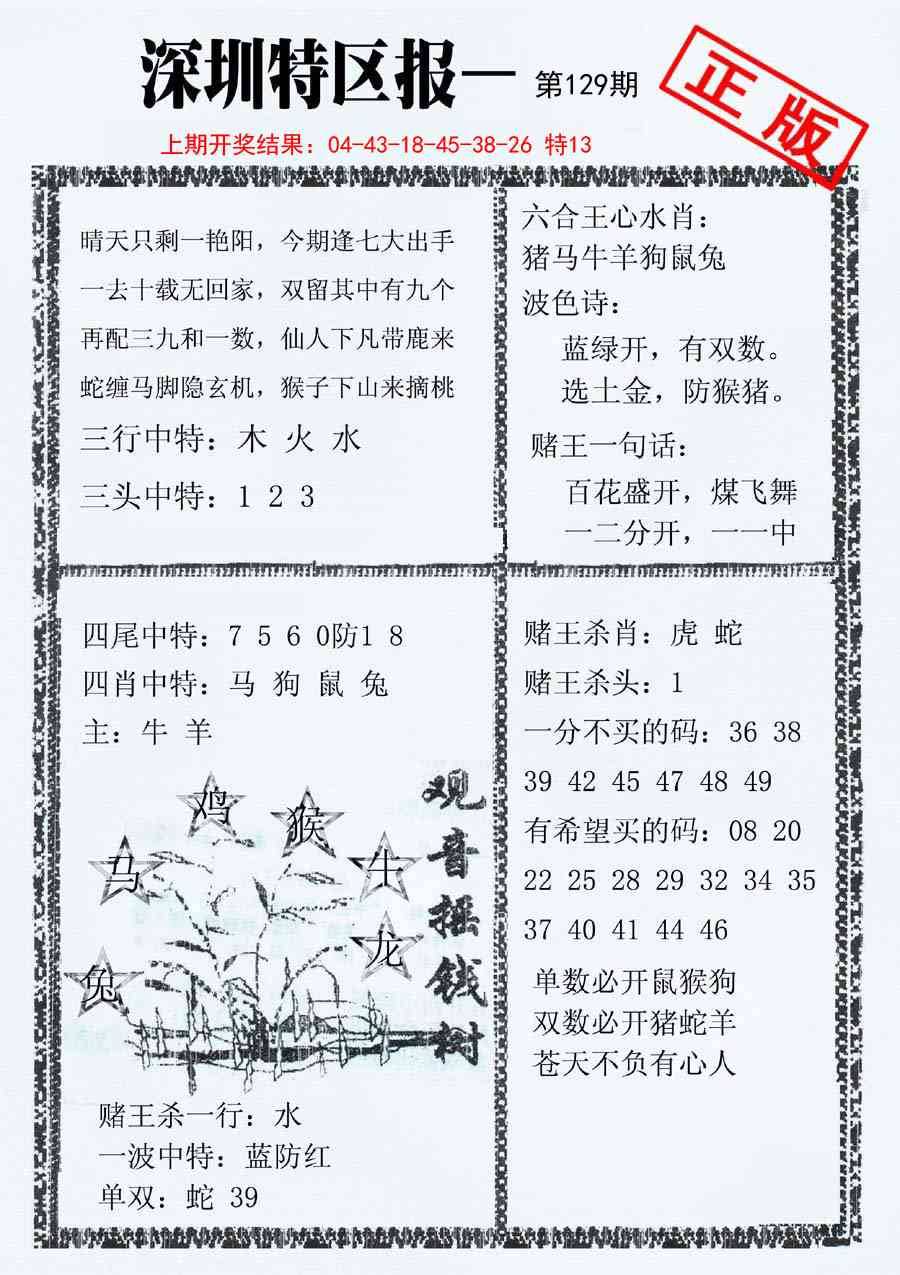 深圳特区报一 第129期
正版
上期开奖结果：04-43-18-45-38-26 特13
晴天只剩一艳阳，今期逢七大出手
一去十载无回家，双留其中有九个
再配三九和一数，仙人下凡带鹿来
蛇缠马脚隐玄机，猴子下山来摘桃
三行中特：木 火 水
三头中特：1 2 3
六合王心水肖：
猪马牛羊狗鼠兔
波色诗：
蓝绿开，有双数。
选土金，防猴猪。
赌王一句话：
百花盛开，煤飞舞
一二分开，一一中
四尾中特：7 5 6 0防1 8
四肖中特：马 狗 鼠 兔
主：牛 羊
鸡
猴
马
牛
龙
兔
观音摇钱树
赌王杀一行：水
一波中特：蓝防红
单双：蛇 39
赌王杀肖：虎 蛇
赌王杀头：1
一分不买的码：36 38
39 42 45 47 48 49
有希望买的码：08 20
22 25 28 29 32 34 35
37 40 41 44 46
单数必开鼠猴狗
双数必开猪蛇羊
苍天不负有心人